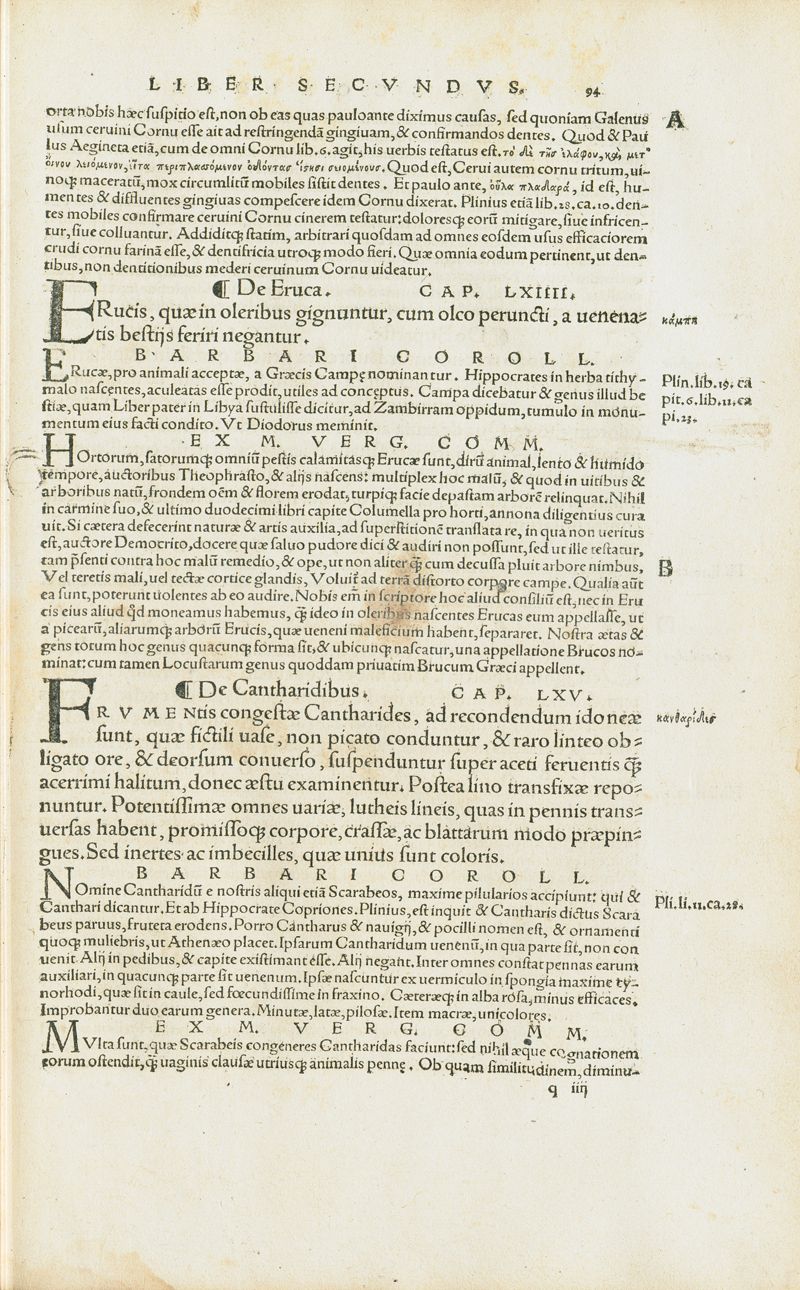 LIBER SECVNDVS. 94
orta nobis hæc ſuſpitio eſt, non ob eas quas pauloante diximus cauſas, ſed quoniam Galenus A
uſum ceruini Cornu eſſe ait ad reſtringendā gingiuam, & confirmandos dentes. Quod & Pau
lus Aegineta etiā, cum de omni Cornu lib. 6. agit, his uerbis teſtatus eſt.
Quod eſt, Cerui autem cornu tritum, ui-
noq; maceratū, mox circumlitū mobiles ſiſtit dentes. Et paulo ante, οὖλα πλαδαρά, id eſt, hu-
mentes & diffluentes gingiuas compeſcere idem Cornu dixerat. Plinius etiā lib. 28. ca. 10. den-
tes mobiles confirmare ceruini Cornu cinerem teſtatur: doloresq; eorū mitigare, ſiue infricen-
tur, ſiue colluantur. Addiditq; ſtatim, arbitrari quoſdam ad omnes eoſdem uſus efficaciorem
crudi cornu farinā eſſe, & dentifricia utroq; modo fieri. Quæ omnia eodum pertinent, ut den-
tibus, non dentitionibus mederi ceruinum Cornu uideatur.
¶ De Eruca. CAP. LXIIII.
ERucis, quæ in oleribus gignuntur, cum oleo peruncti, a uenena- κάμπη
tis beſtijs feriri negantur.
BARBARI COROLL.
ERucæ, pro animali acceptæ, a Græcis Campę nominantur. Hippocrates in herba tithy-
malo naſcentes, aculeatas eſſe prodit, utiles ad conceptus. Campa dicebatur & genus illud be Plin. lib. 19. ca
ſtiæ, quam Liber pater in Libya ſuſtuliſſe dicitur, ad Zambirram oppidum, tumulo in monu- pit. 6. lib. 11. ca
mentum eius facti condito. Vt Diodorus meminit. pi. 23.
EX M. VERG. COMM.
HOrtorum, ſatorumq; omniū peſtis calamitasq; Erucæ ſunt, dirū animal, lento & humido
tempore, auctoribus Theophraſto, & alijs naſcens: multiplex hoc malū, & quod in uitibus &
arboribus natū, frondem oēm & florem erodat, turpiq; facie depaſtam arborē relinquat. Nihil
in carmine ſuo, & ultimo duodecimi libri capite Columella pro horti, annona diligentius cura
uit. Si cætera defecerint naturæ & artis auxilia, ad ſuperſtitionē tranſlata re, in qua non ueritus
eſt, auctore Democrito, docere quæ ſaluo pudore dici & audiri non poſſunt, ſed ut ille teſtatur,
tam p̄ſenti contra hoc malū remedio, & ope, ut non aliter q̄ꝫ cum decuſſa pluit arbore nimbus, B
Vel teretis mali, uel tectæ cortice glandis, Voluit ad terrā diſtorto corpore campe. Qualia aūt
ea ſunt, poterunt uolentes ab eo audire. Nobis em̄ in ſcriptore hoc aliud conſiliū eſt, nec in Eru
cis eius aliud q̄d moneamus habemus, q̄ꝫ ideo in oleribus naſcentes Erucas eum appellaſſe, ut
a picearū, aliarumq; arborū Erucis, quæ uenení maleficium habent, ſepararet. Noſtra ætas &
gens totum hoc genus quacunq; forma ſit, & ubicunq; naſcatur, una appellatione Brucos no-
minat: cum tamen Locuſtarum genus quoddam priuatim Brucum Græci appellent.
¶ De Cantharidibus. CAP. LXV.
FRVMENtis congeſtæ Cantharides, ad recondendum idoneæ κανθαρίδες
ſunt, quæ fictili uaſe, non picato conduntur, & raro linteo ob-
ligato ore, & deorſum conuerſo, ſuſpenduntur ſuper aceti feruentis q̄ꝫ
acerrimi halitum, donec æſtu examinentur. Poſtea lino transfixæ repo-
nuntur. Potentiſſimæ omnes uariæ, luteis lineis, quas in pennis trans-
uerſas habent, promiſſoq; corpore, craſſæ, ac blattarum modo præpin-
gues. Sed inertes ac imbecilles, quæ unius ſunt coloris.
BARBARI COROLL.
NOmine Cantharidū e noſtris aliqui etiā Scarabeos, maxime pilularios accipiunt: qui &
Canthari dicantur. Et ab Hippocrate Copriones. Plinius, eſt inquit & Cantharis dictus Scara Pli. li. 11. ca. 28.
beus paruus, frutera erodens. Porro Cantharus & nauigij, & pocilli nomen eſt, & ornamenti
quoq; muliebris, ut Athenæo placet. Ipſarum Cantharidum uenenū, in qua parte ſit, non con
uenit. Alij in pedibus, & capite exiſtimant eſſe. Alij negant. Inter omnes conſtat pennas earum
auxiliari, in quacunq; parte ſit uenenum. Ipſæ naſcuntur ex uermiculo in ſpongia maxime cy-
norhodi, quæ fit in caule, ſed fœcundiſſime in fraxino. Cæteræq; in alba roſa, minus efficaces.
Improbantur duo earum genera. Minutæ, latæ, piloſæ. Item macræ, unicolores.
EX M. VERG. COMM.
MVlta ſunt, quæ Scarabeis congeneres Cantharidas faciunt: ſed nihil æque cognationem
eorum oſtendit, q̄ꝫ uaginis clauſæ utriusq; animalis pennę. Ob quam ſimilitudinem, diminu-
q iiij